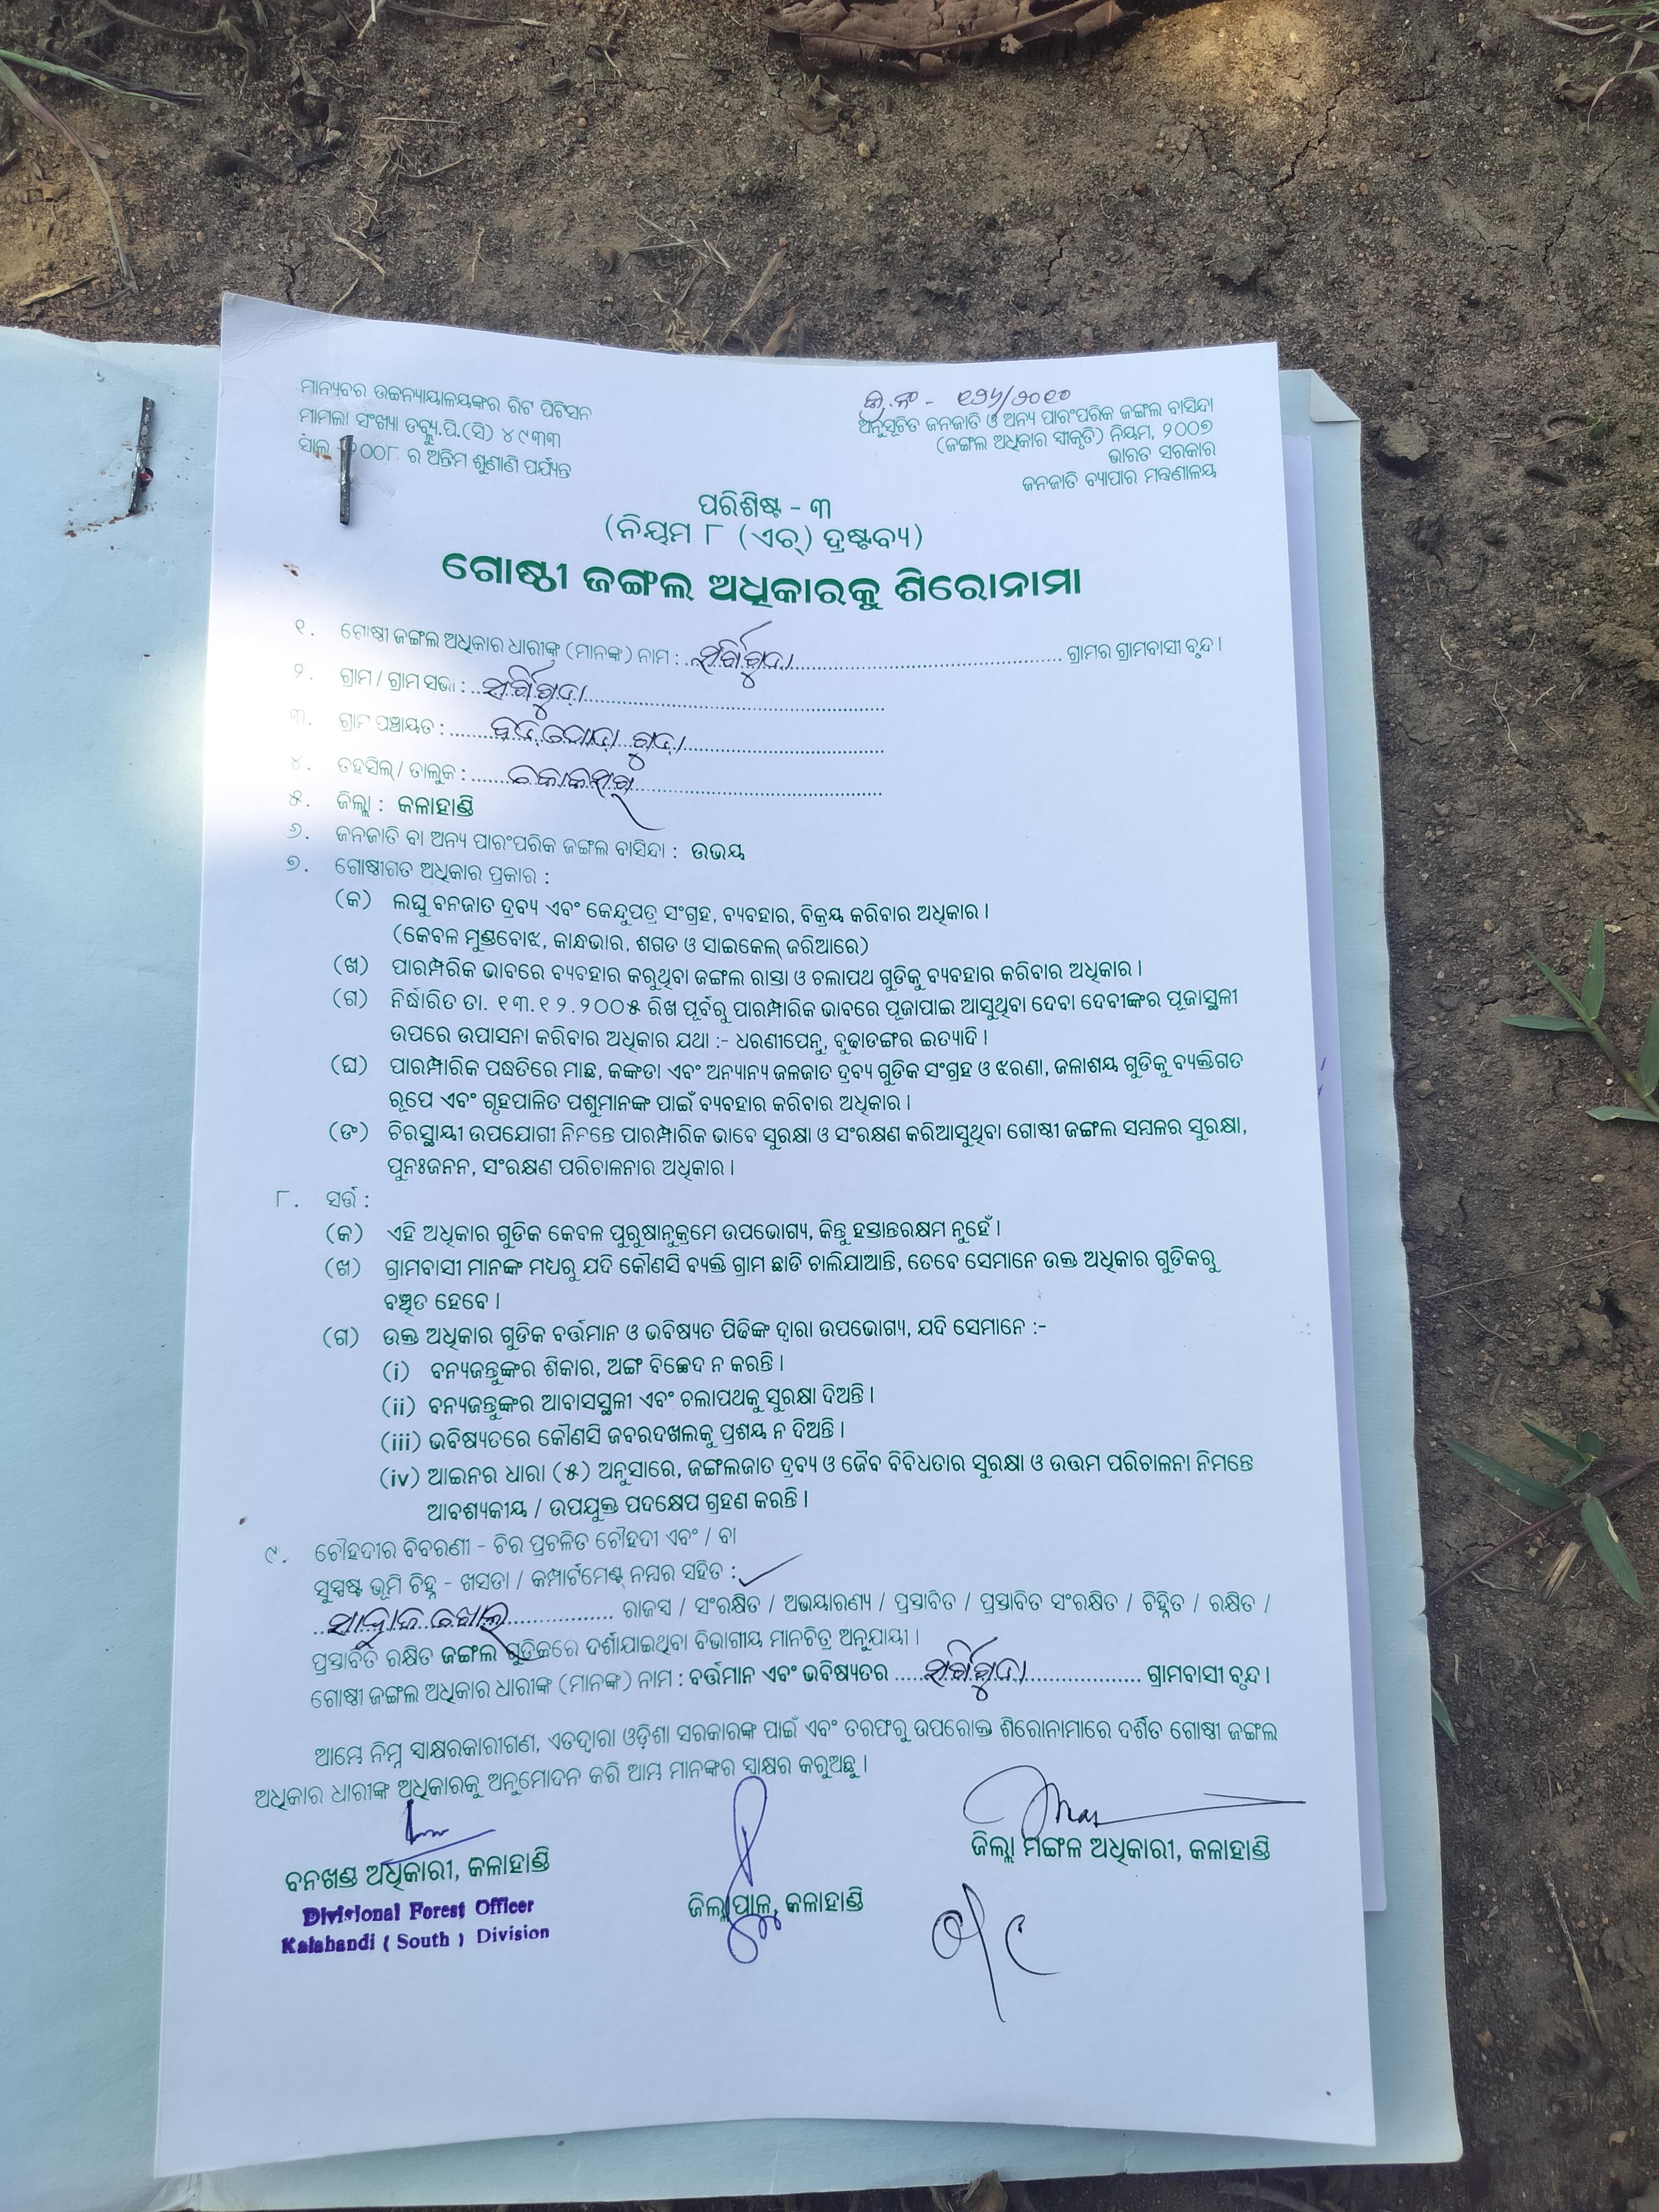 ମାନ୍ୟବର ଉଚ୍ଚନ୍ୟାୟାଳୟଙ୍କର ରିଟ ପିଟିସନ
ମାମଲା ସଂଖ୍ୟା ଡବ୍ଲୁ.ପି.(ସି) ୪୯୩୩
ସାଲ ୨୦୦୮ ର ଅନ୍ତିମ ଶୁଣାଣି ପର୍ଯ୍ୟନ୍ତ
କ୍ର.ନଂ - ୧୨୪/୨୦୧୦
ଅନୁସୂଚିତ ଜନଜାତି ଓ ଅନ୍ୟ ପାରଂପରିକ ଜଙ୍ଗଲ ବାସିନ୍ଦା
(ଜଙ୍ଗଲ ଅଧିକାର ସ୍ୱୀକୃତି) ନିୟମ, ୨୦୦୭
ଭାରତ ସରକାର
ଜନଜାତି ବ୍ୟାପାର ମନ୍ତ୍ରଣାଳୟ
ପରିଶିଷ୍ଟ - ୩
(ନିୟମ ୮ (ଏଚ୍) ଦ୍ରଷ୍ଟବ୍ୟ)
ଗୋଷ୍ଠୀ ଜଙ୍ଗଲ ଅଧିକାରକୁ ଶିରୋନାମା
୧. ଗୋଷ୍ଠୀ ଜଙ୍ଗଲ ଅଧିକାର ଧାରୀଙ୍କ (ମାନଙ୍କ) ନାମ : ଗ୍ରାମର ଗ୍ରାମବାସୀ ବୃନ୍ଦ।
୨. ଗ୍ରାମ / ଗ୍ରାମ ସଭା :
୩. ଗ୍ରାମ ପଞ୍ଚାୟତ :
୪. ତହସିଲ୍ / ତାଲୁକ :
୫. ଜିଲ୍ଲା : କଳାହାଣ୍ଡି
୬. ଜନଜାତି ବା ଅନ୍ୟ ପାରଂପରିକ ଜଙ୍ଗଲ ବାସିନ୍ଦା : ଉଭୟ
୭. ଗୋଷ୍ଠୀଗତ ଅଧିକାର ପ୍ରକାର :
(କ) ଲଘୁ ବନଜାତ ଦ୍ରବ୍ୟ ଏବଂ କେନ୍ଦୁପତ୍ର ସଂଗ୍ରହ, ବ୍ୟବହାର, ବିକ୍ରୟ କରିବାର ଅଧିକାର।
(କେବଳ ମୁଣ୍ଡବୋଝ, କାନ୍ଧଭାର, ଶଗଡ ଓ ସାଇକେଲ୍ ଜରିଆରେ)
(ଖ) ପାରମ୍ପରିକ ଭାବରେ ବ୍ୟବହାର କରୁଥିବା ଜଙ୍ଗଲ ରାସ୍ତା ଓ ଚଲାପଥ ଗୁଡିକୁ ବ୍ୟବହାର କରିବାର ଅଧିକାର।
(ଗ) ନିର୍ଦ୍ଧାରିତ ତା. ୧୩.୧୨.୨୦୦୫ ରିଖ ପୂର୍ବରୁ ପାରମ୍ପାରିକ ଭାବରେ ପୂଜାପାଇ ଆସୁଥିବା ଦେବା ଦେବୀଙ୍କର ପୂଜାସ୍ଥଳୀ
ଉପରେ ଉପାସନା କରିବାର ଅଧିକାର ଯଥା :- ଧରଣୀପେନୁ, ବୁଢାଡଙ୍ଗର ଇତ୍ୟାଦି।
(ଘ) ପାରମ୍ପାରିକ ପଦ୍ଧତିରେ ମାଛ, କଙ୍କଡା ଏବଂ ଅନ୍ୟାନ୍ୟ ଜଳଜାତ ଦ୍ରବ୍ୟ ଗୁଡିକ ସଂଗ୍ରହ ଓ ଝରଣା, ଜଳାଶୟ ଗୁଡିକୁ ବ୍ୟକ୍ତିଗତ
ରୂପେ ଏବଂ ଗୃହପାଳିତ ପଶୁମାନଙ୍କ ପାଇଁ ବ୍ୟବହାର କରିବାର ଅଧିକାର।
(ଙ) ଚିରସ୍ଥାୟୀ ଉପଯୋଗୀ ନିମନ୍ତେ ପାରମ୍ପାରିକ ଭାବେ ସୁରକ୍ଷା ଓ ସଂରକ୍ଷଣ କରିଆସୁଥିବା ଗୋଷ୍ଠୀ ଜଙ୍ଗଲ ସମ୍ବଳର ସୁରକ୍ଷା,
ପୁନଃଜନନ, ସଂରକ୍ଷଣ ପରିଚାଳନାର ଅଧିକାର।
୮. ସର୍ତ୍ତ :
(କ) ଏହି ଅଧିକାର ଗୁଡିକ କେବଳ ପୁରୁଷାନୁକ୍ରମେ ଉପଭୋଗ୍ୟ, କିନ୍ତୁ ହସ୍ତାନ୍ତରକ୍ଷମ ନୁହେଁ।
(ଖ) ଗ୍ରାମବାସୀ ମାନଙ୍କ ମଧ୍ୟରୁ ଯଦି କୌଣସି ବ୍ୟକ୍ତି ଗ୍ରାମ ଛାଡି ଚାଲିଯାଆନ୍ତି, ତେବେ ସେମାନେ ଉକ୍ତ ଅଧିକାର ଗୁଡିକରୁ
ବଞ୍ଚିତ ହେବେ।
(ଗ) ଉକ୍ତ ଅଧିକାର ଗୁଡିକ ବର୍ତ୍ତମାନ ଓ ଭବିଷ୍ୟତ ପିଢିଙ୍କ ଦ୍ୱାରା ଉପଭୋଗ୍ୟ, ଯଦି ସେମାନେ :-
(i) ବନ୍ୟଜନ୍ତୁଙ୍କର ଶିକାର, ଅଙ୍ଗ ବିଚ୍ଛେଦ ନ କରନ୍ତି।
(ii) ବନ୍ୟଜନ୍ତୁଙ୍କର ଆବାସସ୍ଥଳୀ ଏବଂ ଚଲାପଥକୁ ସୁରକ୍ଷା ଦିଅନ୍ତି।
(iii) ଭବିଷ୍ୟତରେ କୌଣସି ଜବରଦଖଲକୁ ପ୍ରଶୟ ନ ଦିଅନ୍ତି।
(iv) ଆଇନର ଧାରା (୫) ଅନୁସାରେ, ଜଙ୍ଗଲଜାତ ଦ୍ରବ୍ୟ ଓ ଜୈବ ବିବିଧତାର ସୁରକ୍ଷା ଓ ଉତ୍ତମ ପରିଚାଳନା ନିମନ୍ତେ
ଆବଶ୍ୟକୀୟ / ଉପଯୁକ୍ତ ପଦକ୍ଷେପ ଗ୍ରହଣ କରନ୍ତି।
୯. ଚୌହଦୀର ବିବରଣୀ - ଚିର ପ୍ରଚଳିତ ଚୌହଦୀ ଏବଂ / ବା
ସୁସ୍ପଷ୍ଟ ଭୂମି ଚିହ୍ନ - ଖସଡା / କମ୍ପାର୍ଟମେଣ୍ଟ୍ ନମ୍ବର ସହିତ :
ରାଜସ୍ୱ / ସଂରକ୍ଷିତ / ଅଭୟାରଣ୍ୟ / ପ୍ରସ୍ତାବିତ / ପ୍ରସ୍ତାବିତ ସଂରକ୍ଷିତ / ଚିହ୍ନିତ / ରକ୍ଷିତ /
ପ୍ରସ୍ତାବିତ ରକ୍ଷିତ ଜଙ୍ଗଲ ଗୁଡିକରେ ଦର୍ଶାଯାଇଥିବା ବିଭାଗୀୟ ମାନଚିତ୍ର ଅନୁଯାୟୀ।
ଗୋଷ୍ଠୀ ଜଙ୍ଗଲ ଅଧିକାର ଧାରୀଙ୍କ (ମାନଙ୍କ) ନାମ : ବର୍ତ୍ତମାନ ଏବଂ ଭବିଷ୍ୟତର ଗ୍ରାମବାସୀ ବୃନ୍ଦ।
ଆମ୍ଭେ ନିମ୍ନ ସ୍ୱାକ୍ଷରକାରୀଗଣ, ଏତଦ୍ୱାରା ଓଡ଼ିଶା ସରକାରଙ୍କ ପାଇଁ ଏବଂ ତରଫରୁ ଉପରୋକ୍ତ ଶିରୋନାମାରେ ଦର୍ଶିତ ଗୋଷ୍ଠୀ ଜଙ୍ଗଲ
ଅଧିକାର ଧାରୀଙ୍କ ଅଧିକାରକୁ ଅନୁମୋଦନ କରି ଆମ୍ଭ ମାନଙ୍କର ସ୍ୱାକ୍ଷର କରୁଅଛୁ।
ବନଖଣ୍ଡ ଅଧିକାରୀ, କଳାହାଣ୍ଡି
Divisional Forest Officer
Kalahandi ( South ) Division
ଜିଲ୍ଲାପାଳ, କଳାହାଣ୍ଡି
ଜିଲ୍ଲା ମଙ୍ଗଳ ଅଧିକାରୀ, କଳାହାଣ୍ଡି